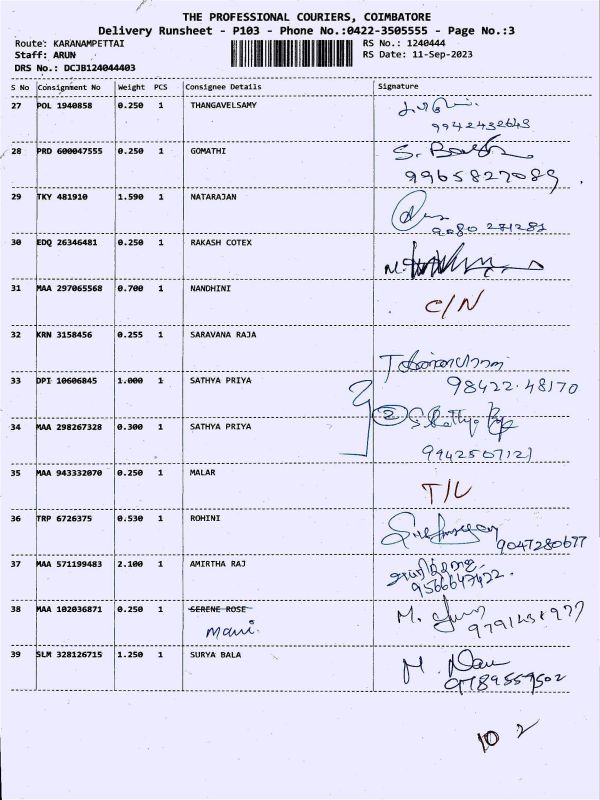 THE PROFESSIONAL COURIERS, COIMBATORE
Delivery Runsheet - P103 - Phone No.:0422-3505555 - Page No.:3
Route: KARANAMPETTAI RS No.: 1240444
Staff: ARUN RS Date: 11-Sep-2023
DRS No.: DCJB124044403
S No Consignment No Weight PCS Consignee Details Signature
27 POL 1940858 0.250 1 THANGAVELSAMY
9942432643
28 PRD 600047555 0.250 1 GOMATHI S.
9965827089
29 TKY 481910 1.590 1 NATARAJAN
9080 281281
30 EDQ 26346481 0.250 1 RAKASH COTEX
31 MAA 297065568 0.700 1 NANDHINI C/N
32 KRN 3158456 0.255 1 SARAVANA RAJA
33 DPI 10606845 1.000 1 SATHYA PRIYA 98422.48170
2
34 MAA 298267328 0.300 1 SATHYA PRIYA
9942507121
35 MAA 943332070 0.250 1 MALAR T/L
36 TRP 6726375 0.530 1 ROHINI
9047280677
37 MAA 571199483 2.100 1 AMIRTHA RAJ
9566647422.
38 MAA 102036871 0.250 1 SERENE ROSE M.
mani.
39 SLM 328126715 1.250 1 SURYA BALA M.
9789559502
10 2